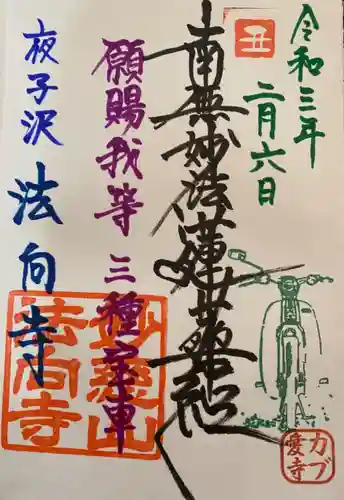 令和三年
二月六日
丑
南無妙法蓮華経
願賜我等三種宝車
夜子沢
法向寺
妙慈山
法向寺
カブ
愛寺